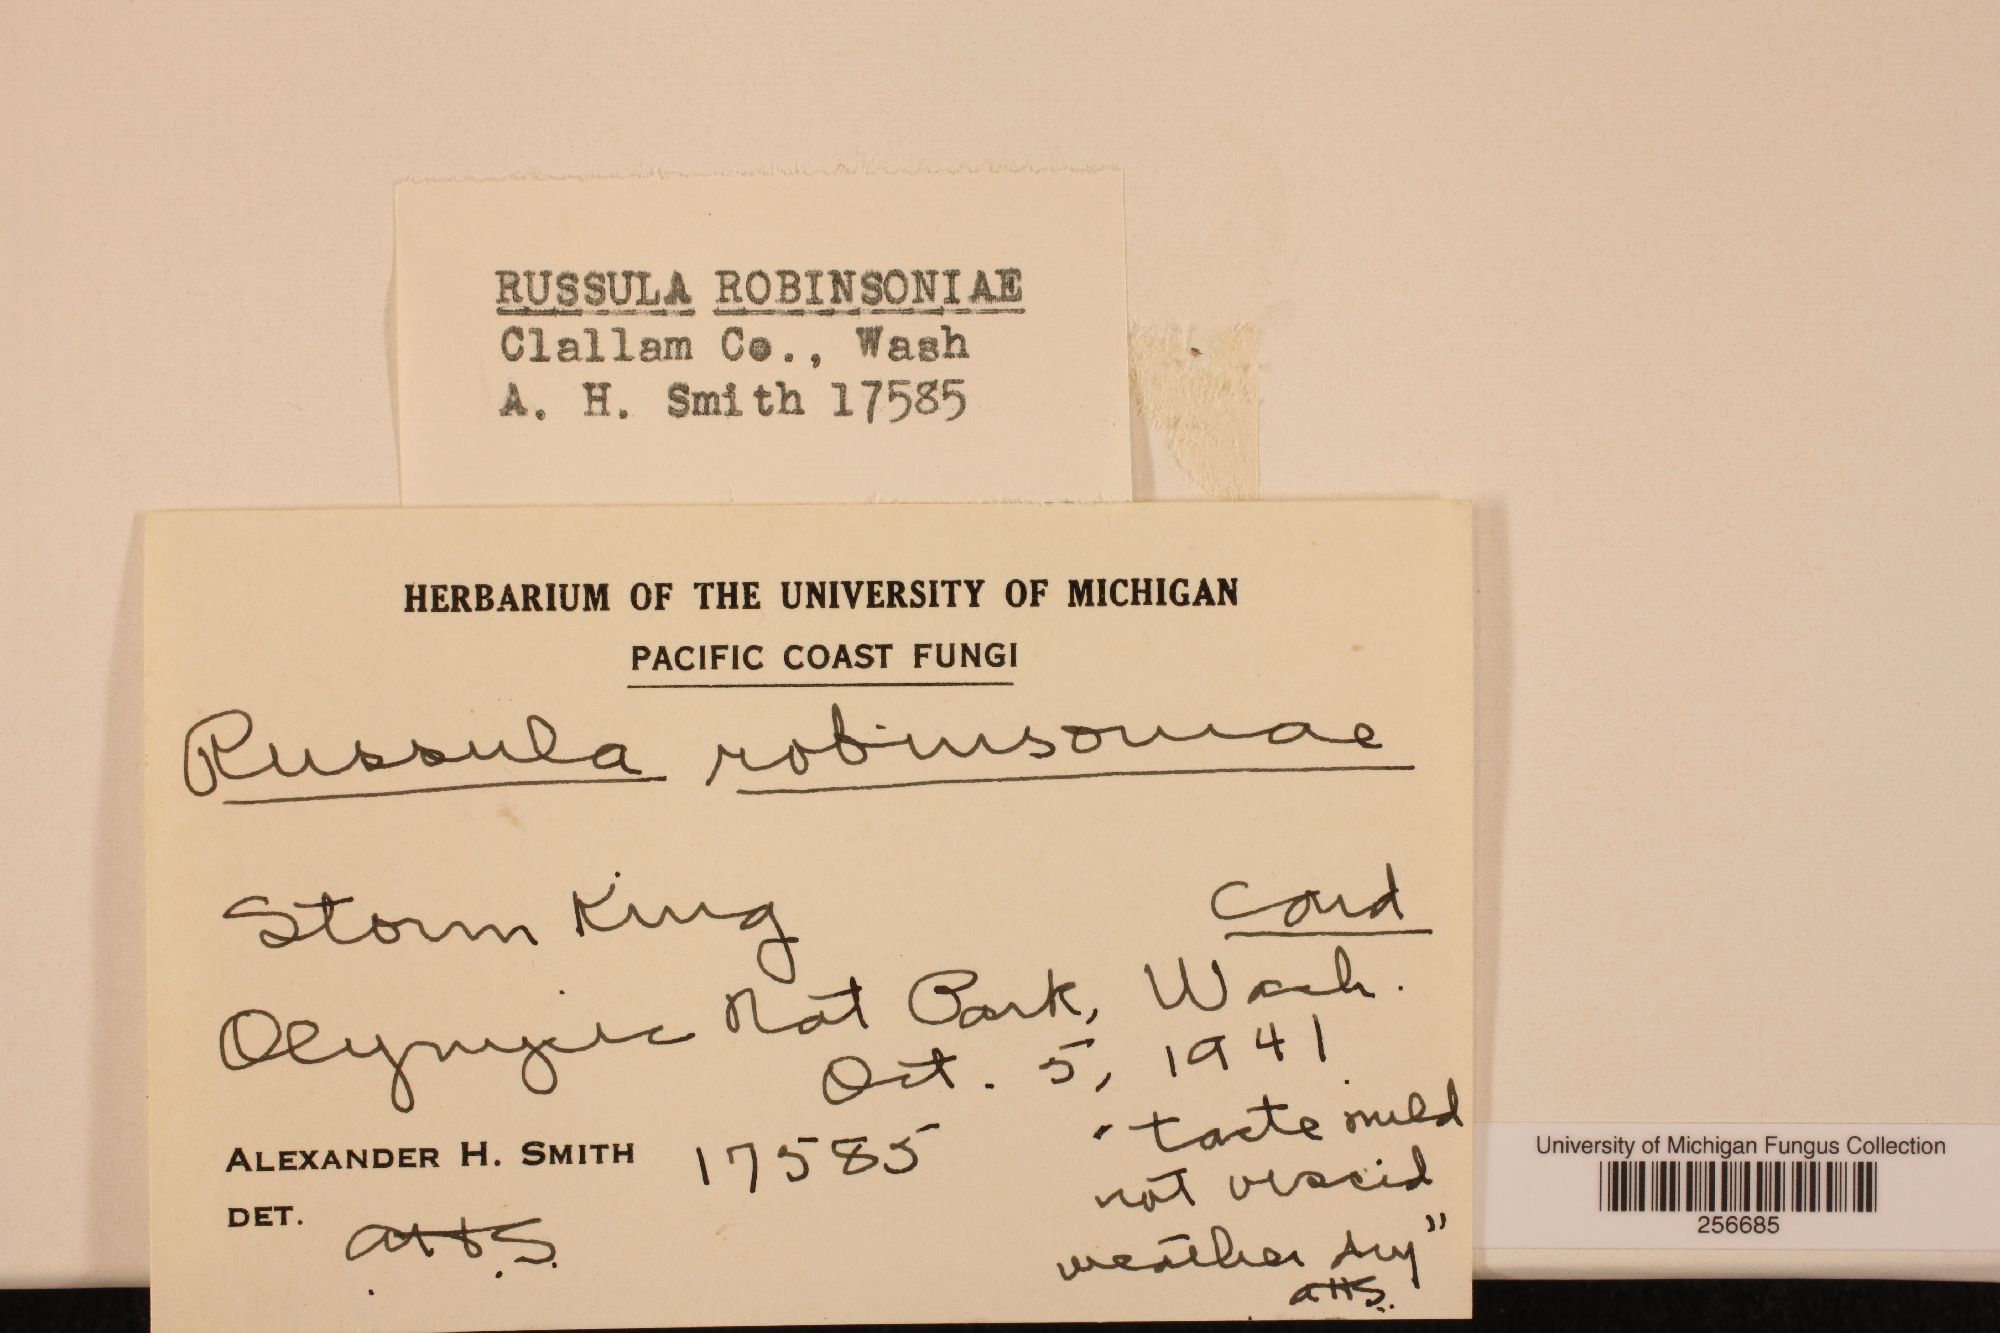 RUSSULA ROBINSONIAE
Clallam Co., Wash
A. H. Smith 17585
HERBARIUM OF THE UNIVERSITY OF MICHIGAN
PACIFIC COAST FUNGI
Russula robinsoniae
Storm King
Card
Olympic Nat Park, Wash.
Oct. 5, 1941
ALEXANDER H. SMITH 17585
"taste mild
not viscid
weather dry"
AHS.
DET. AHS.
University of Michigan Fungus Collection
256685